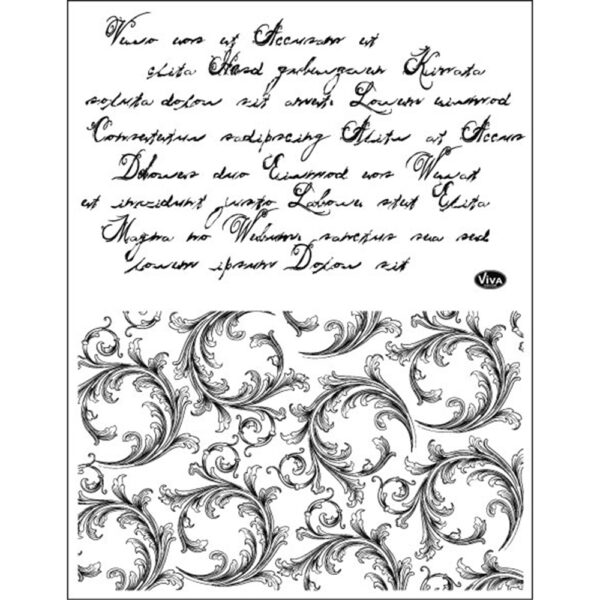 Vero eos et Accusam et
clita Kasd gubergren Kirrata
soluta dolou sit amet. Lovem eiumod
Consetetuu sadipscing Alitu at Accus
Dolowes duo Eiumod eos Wewat
et invidunt justo Labowe stet Elita
Magna no Webum. sanctus sea sed
lovem ipsum Dolou sit
VIVA